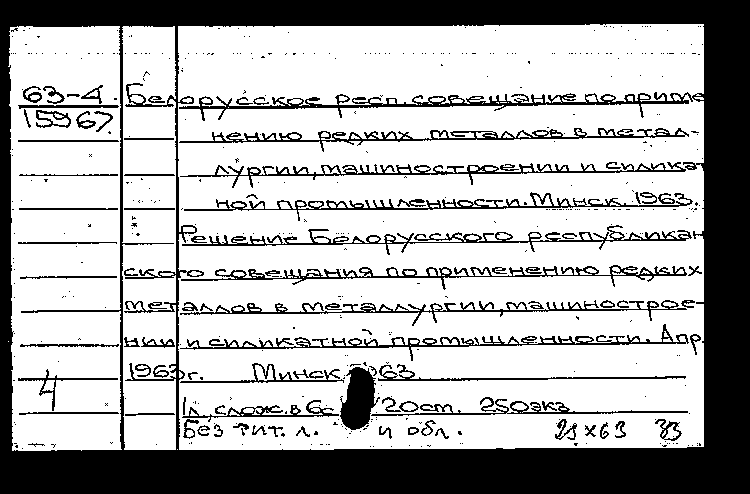 63-4 Белорусское респ. совещание по приме-
15967 нению редких металлов в метал-
лургии, машиностроении и силикат
ной промышленности. Минск. 1963.
Решение Белорусского республикан
ского совещания по применению редких
металлов в металлургии, машинострое-
нии и силикатной промышленности. Апр.
1963г. Минск 1963
4 1л, слож. в 6с 20см. 250экз
Без тит. л. и обл. 63 33